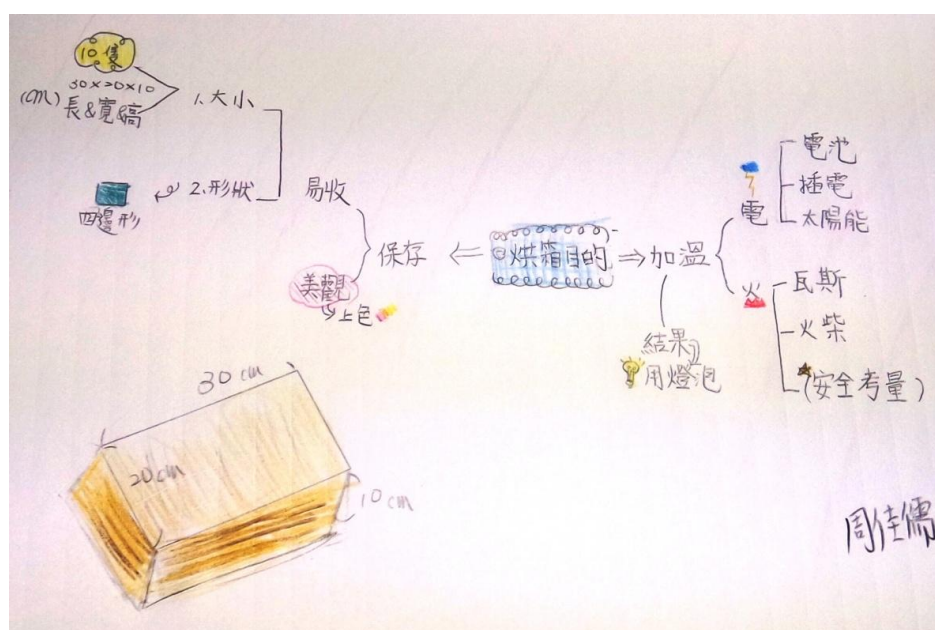 10隻
30×20×10
(cm) 長&寬&高
1.大小
2.形狀
四邊形
易收
美觀
上色
保存
烘箱目的
加溫
結果
用燈泡
電
電池
插電
太陽能
火
瓦斯
火柴
(安全考量)
30 cm
20 cm
10 cm
周佳儒